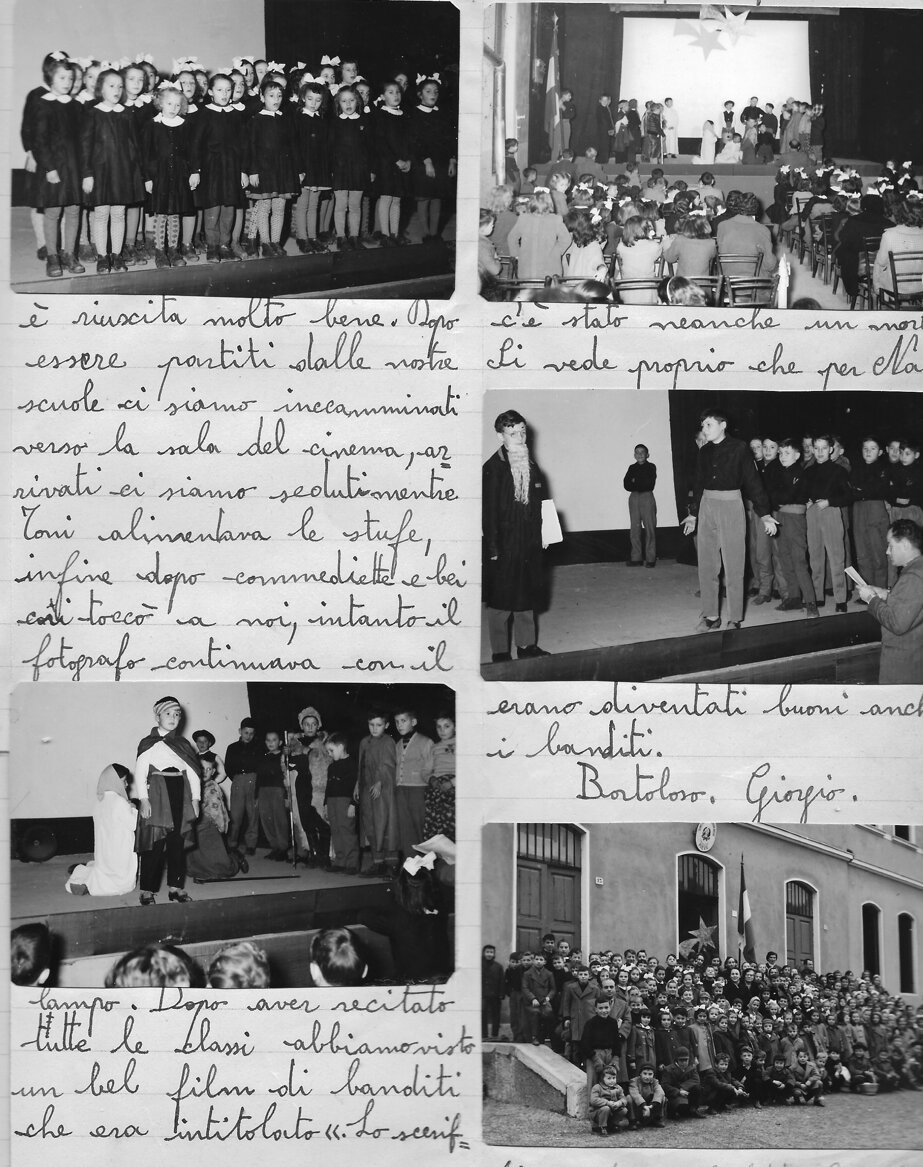 è riuscita molto bene. Dopo
essere partiti dalle nostre
scuole ci siamo incamminati
verso la sala del cinema, ar=
rivati ci siamo seduti mentre
Toni alimentava le stufe,
infine dopo commediette e bei
cori toccò a noi, intanto il
fotografo continuava con il
lampo. Dopo aver recitato
tutte le classi abbiamo visto
un bel film di banditi
che era intitolato «Lo scerif=
c'è stato neanche un mor
Si vede proprio che per Na
erano diventati buoni anch
i banditi.
Bortoloso. Giorgio.